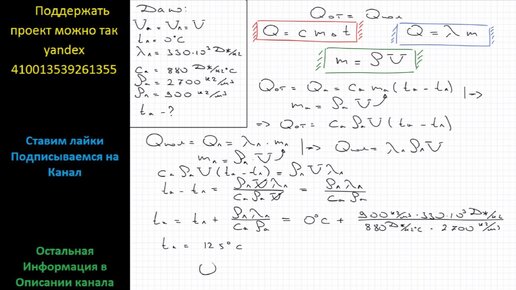 Поддержать
проект можно так
yandex
410013539261355
Ставим лайки
Подписываемся на
Канал
Остальная
Информация в
Описании канала
Дано:
Vа = Vл = V
tл = 0°C
λл = 330·10³ Дж/кг
cа = 880 Дж/кг°C
ρа = 2700 кг/м³
ρл = 900 кг/м³
tа - ?
Qот = Qпол
Q = c m Δt
Q = λ m
m = ρ V
Qот = Qа = cа mа (tа - tл) |->
mа = ρа V
=> Qот = cа ρа V (tа - tл)
Qпол = Qл = λл · mл |-> Qпол = λл ρл V
mл = ρл V
cа ρа V (tа - tл) = ρл V λл
tа - tл = ρл V λл / cа ρа V = ρл λл / cа ρа
tа = tл + ρл λл / cа ρа = 0°C + 900 кг/м³ · 330·10³ Дж/кг / 880 Дж/кг°C · 2700 кг/м³
tа = 125°C